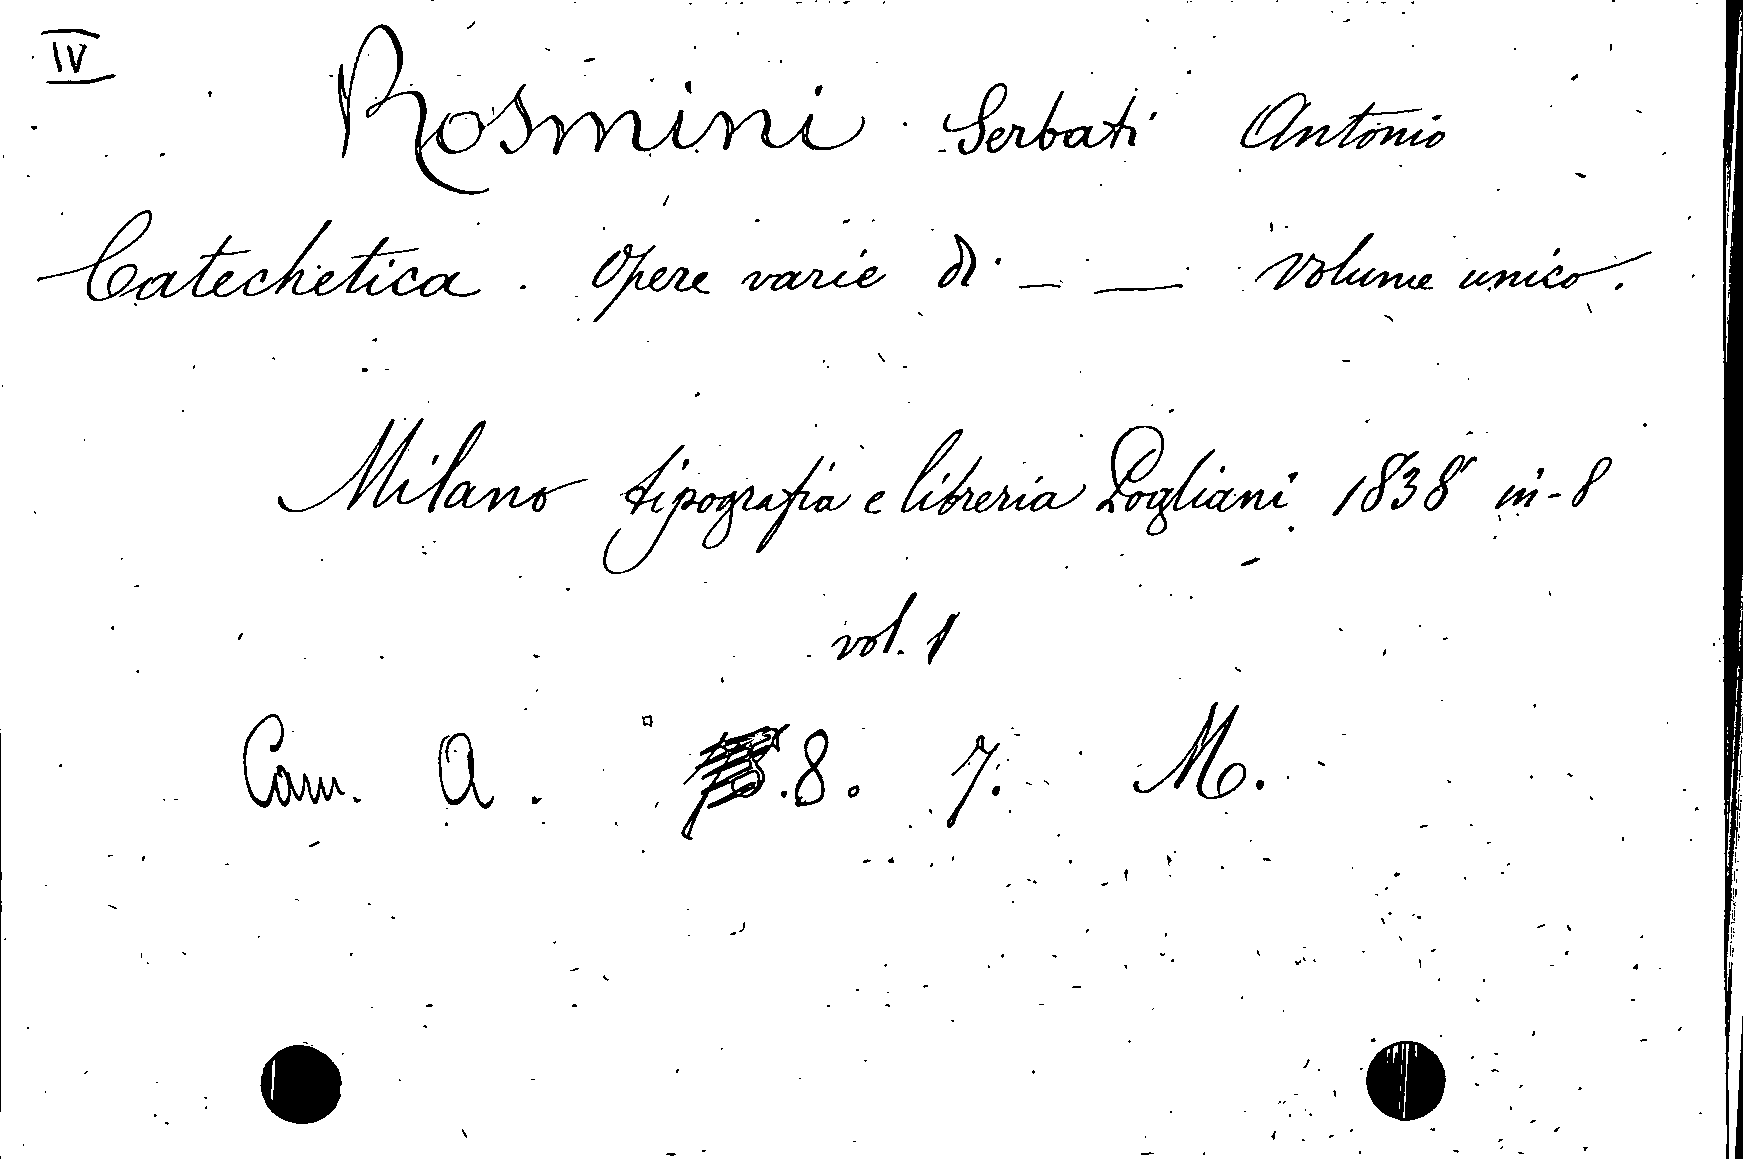 IV
Rosmini Serbati Antonio
Catechetica. Opere varie di — — volume unico.
Milano tipografia e libreria Pogliani 1838 in-8
vol. 1
Cam. A. 8. 7. M.